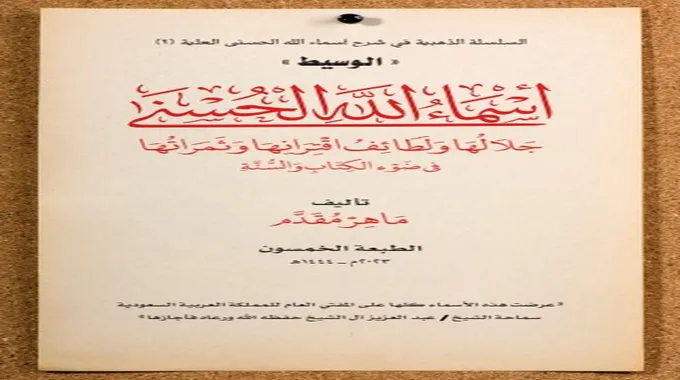 السلسلة الذهبية في شرح أسماء الله الحسنى العلية (٢)
« الوسيط »
أَسْمَاءُ اللَّهِ الْحُسْنَى
جَلَالُهَا وَلَطَائِفُ اقْتِرَانِهَا وَثَمَرَاتُهَا
فِي ضَوْءِ الْكِتَابِ وَالسُّنَّةِ
تأليف
مَاهِرْ مُقَدَّم
الطبعة الخمسون
٢٠٢٣م – ١٤٤٤هـ
«عرضت هذه الأسماء كلها على المفتي العام للمملكة العربية السعودية
سماحة الشيخ / عبد العزيز ال الشيخ حفظه الله ورعاه فأجازها»